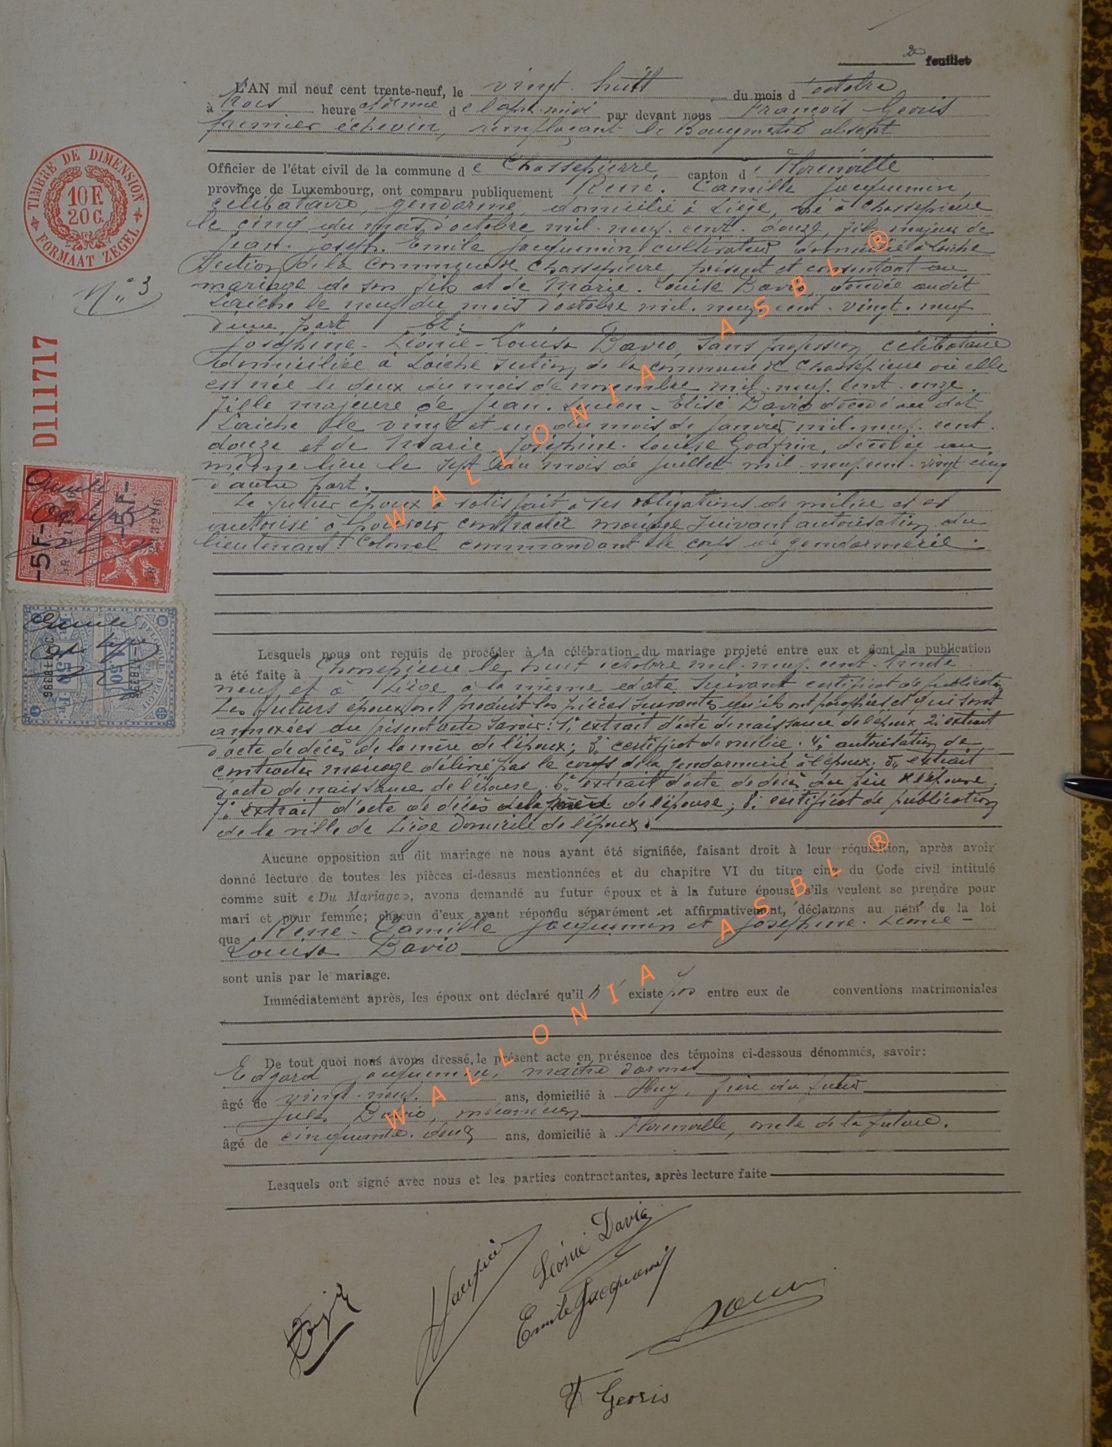 2e feuillet
L'AN mil neuf cent trente-neuf, le vingt-huit du mois d'octobre
à trois heure de l'après-midi par devant nous François Georis
premier échevin, remplaçant le Bourgmestre absent
Officier de l'état civil de la commune de Chassepierre, canton d'
province de Luxembourg, ont comparu publiquement René-Camille Jacquemin,
célibataire, gendarme, domicilié à Liège, né à Chassepierre
le cinq du mois d'octobre mil-neuf-cent-douze, fils majeur de
Jean-Joseph-Emile Jacquemin cultivateur domicilié à Laiche
section de la commune de Chassepierre, présent et consentant au
mariage de son fils et de Marie-Louise David, décédée audit
Laiche le neuf du mois d'octobre mil-neuf-cent-vingt-neuf
d'une part Et:
Joséphine-Léonie-Louisa David, sans profession célibataire
domiciliée à Laiche section de la commune de Chassepierre où elle
est née le deux du mois de novembre mil-neuf-cent-onze.
fille majeure de Jean-Elisé David décédé au dit
Laiche le vingt et un du mois de janvier mil-neuf-cent
douze et de Marie-Joséphine-Louise Godfrin, décédée au
même lieu le sept du mois de juillet mil-neuf-cent-vingt cinq
d'autre part.
Le futur époux a satisfait à ses obligations de milice et est
autorisé à pouvoir contracter mariage suivant autorisation du
lieutenant Colonel commandant le corps de gendarmerie.
Lesquels nous ont requis de procéder à la célébration du mariage projeté entre eux et dont la publication
a été faite à Chassepierre le huit octobre mil-neuf-cent-trente
neuf et à Liège à la même date suivant certificat de publicat.
Les futurs époux ont produit les pièces suivantes qu'ils ont paraphées et qui sont
annexées au présent acte savoir: 1° extrait d'acte de naissance de l'époux 2° extrait
d'acte de décès de la mère de l'époux; 3° certificat de milice. 4° autorisation de
contracter mariage délivré par le corps de la gendarmerie à l'époux; 5° extrait
d'acte de naissance de l'épouse. 6° extrait d'acte de décès du père de l'épouse.
7° extrait d'acte de décès de la mère de l'épouse; 8° certificat de publication
de la ville de Liège domicile de l'époux.
Aucune opposition au dit mariage ne nous ayant été signifiée, faisant droit à leur réquisition, après avoir
donné lecture de toutes les pièces ci-dessus mentionnées et du chapitre VI du titre cinq du Code civil intitulé
comme suit «Du Mariage», avons demandé au futur époux et à la future épouse s'ils veulent se prendre pour
mari et pour femme; chacun d'eux ayant répondu séparément et affirmativement, déclarons au nom de la loi
que René-Camille Jacquemin et Joséphine-Léonie-
Louisa David
sont unis par le mariage.
Immédiatement après, les époux ont déclaré qu'il n'existe pas entre eux de conventions matrimoniales
De tout quoi nous avons dressé, le présent acte en présence des témoins ci-dessous dénommés, savoir:
Edgard Jacquemin, maître d'armes
âgé de vingt-neuf ans, domicilié à Huy, frère du futur
Jules David, mécanicien
âgé de cinquante-deux ans, domicilié à oncle de la future.
Lesquels ont signé avec nous et les parties contractantes, après lecture faite
Léonie David
Emile Jacquemin
F Georis
TIMBRE DE DIMENSION
10 F.
20 C.
FORMAAT ZEGEL
N° 3
D111717
-5 F.-
-5 F-
WALLONIA ASBL ®
WALLONIA ASBL ®